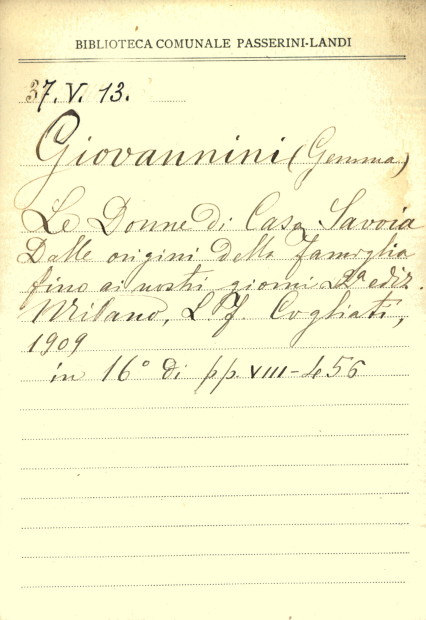 BIBLIOTECA COMUNALE PASSERINI-LANDI
37. V. 13.
Giovannini (Gemma)
Le Donne di Casa Savoia
Dalle origini della famiglia
fino ai nostri giorni 2ª ediz.
Milano, L. F. Cogliati,
1909
in 16° di pp. VIII-456